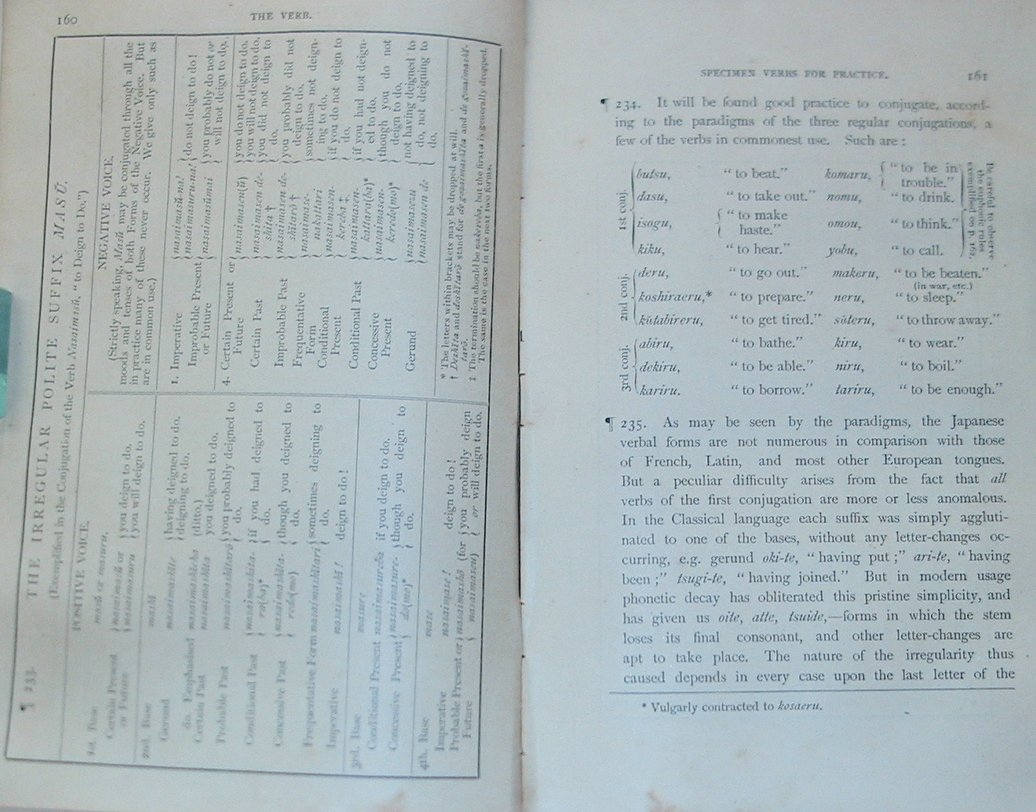 160
THE VERB.
¶ 233. THE IRREGULAR POLITE SUFFIX MASŬ.
(Exemplified in the Conjugation of the Verb Nasaimasŭ, "to Deign to Do.")
POSITIVE VOICE.
1st. Base
masŭ or masuru.
Certain Present or Future
nasaimasŭ or nasaimasuru
you deign to do.
you will deign to do.
2nd Base
mashi
Gerund
nasaimashite
having deigned to do.
deigning to do.
do. Emphasised
(ditto.)
Certain Past
nasaimashita
you deigned to do.
Probable Past
nasaimashitarō
you probably deigned to do.
Conditional Past
nasaimashita-
ra(ba)*
if you had deigned to do.
Concessive Past
nasaimashita-
redo(mo)
though you deigned to do.
Frequentative Form
nasaimashitari
sometimes deigning to do.
Imperative
nasaimashi!
deign to do!
3rd. Base
masure
Conditional Present
nasaimasureba
if you deign to do.
Concessive Present
nasaimasure-
do(mo)*
though you deign to do.
4th. Base
mase
Imperative
nasaimase!
deign to do!
Probable Present or Future
nasaimashō (for nasaimaseu)
you probably deign or will deign to do.
NEGATIVE VOICE.
(Strictly speaking, Masŭ may be conjugated through all the
moods and tenses of both Forms of the Negative Voice. But
in practice many of these never occur. We give only such as
are in common use.)
1. Imperative
nasaimasŭ-na!
nasaimasuru-na!
do not deign to do!
Improbable Present or Future
nasaimasŭmai
you probably do not or will not deign to do.
4. Certain Present or Future
nasaimasen(ŭ)
you do not deign to do.
you will not deign to do.
Certain Past
nasaimasen de-
shĭta †
you did not deign to do.
Improbable Past
nasaimasen de-
shĭtarō †
you probably did not deign to do.
Frequentative Form
nasaimase-
nakattari
sometimes not deigning to do.
Conditional Present
nasaimasen-
kereba ‡
if you do not deign to do.
Conditional Past
nasaimasen-
kattara(ba)*
if you had not deigned to do.
Concessive Present
nasaimasen-
keredo(mo)*
though you do not deign to do.
Gerund
nasaimasen de
not having deigned to do, not deigning to do.
* The letters within brackets may be dropped at will.
† Deshĭta and deshĭtarō stand for de gozaimashĭta and de gozaimashĭ-
tarō.
The same is the case in the next two forms.
SPECIMEN VERBS FOR PRACTICE.
161
¶ 234. It will be found good practice to conjugate, accord-
ing to the paradigms of the three regular conjugations, a
few of the verbs in commonest use. Such are :
1st conj.
butsu, "to beat." komaru, "to be in trouble."
dasu, "to take out." nomu, "to drink.
isogu, "to make haste." omou, "to think."
kiku, "to hear." yobu, "to call.
Be careful to observe
the euphonic rules
exemplified on p. 162
2nd conj.
deru, "to go out." makeru, "to be beaten."
(in war, etc.)
koshiraeru,* "to prepare." neru, "to sleep."
kŭtabireru, "to get tired." sŭteru, "to throw away."
3rd conj.
abiru, "to bathe." kiru, "to wear."
dekiru, "to be able." niru, "to boil."
kariru. "to borrow." tariru, "to be enough."
¶ 235. As may be seen by the paradigms, the Japanese
verbal forms are not numerous in comparison with those
of French, Latin, and most other European tongues.
But a peculiar difficulty arises from the fact that all
verbs of the first conjugation are more or less anomalous.
In the Classical language each suffix was simply aggluti-
nated to one of the bases, without any letter-changes oc-
curring, e.g. gerund oki-te, "having put ;" ari-te, "having
been ;" tsugi-te, "having joined." But in modern usage
phonetic decay has obliterated this pristine simplicity, and
has given us oite, atte, tsuide,—forms in which the stem
loses its final consonant, and other letter-changes are
apt to take place. The nature of the irregularity thus
caused depends in every case upon the last letter of the
* Vulgarly contracted to kosaeru.